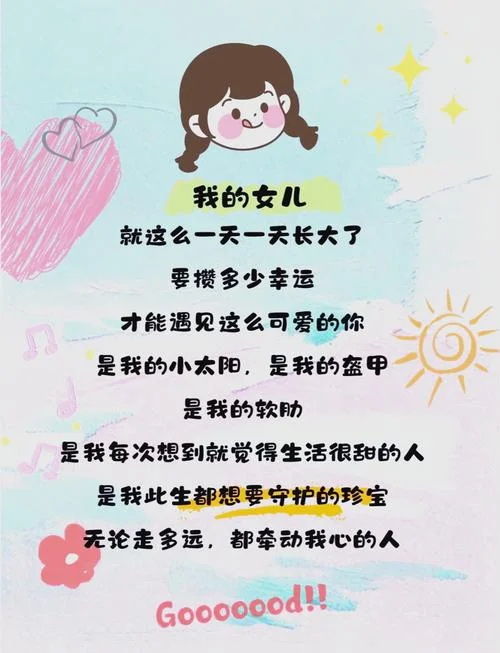 我的女儿
就这么一天一天长大了
要攒多少幸运
才能遇见这么可爱的你
是我的小太阳，是我的盔甲
是我的软肋
是我每次想到就觉得生活很甜的人
是我此生都想要守护的珍宝
无论走多远，都牵动我心的人
Gooooood!!